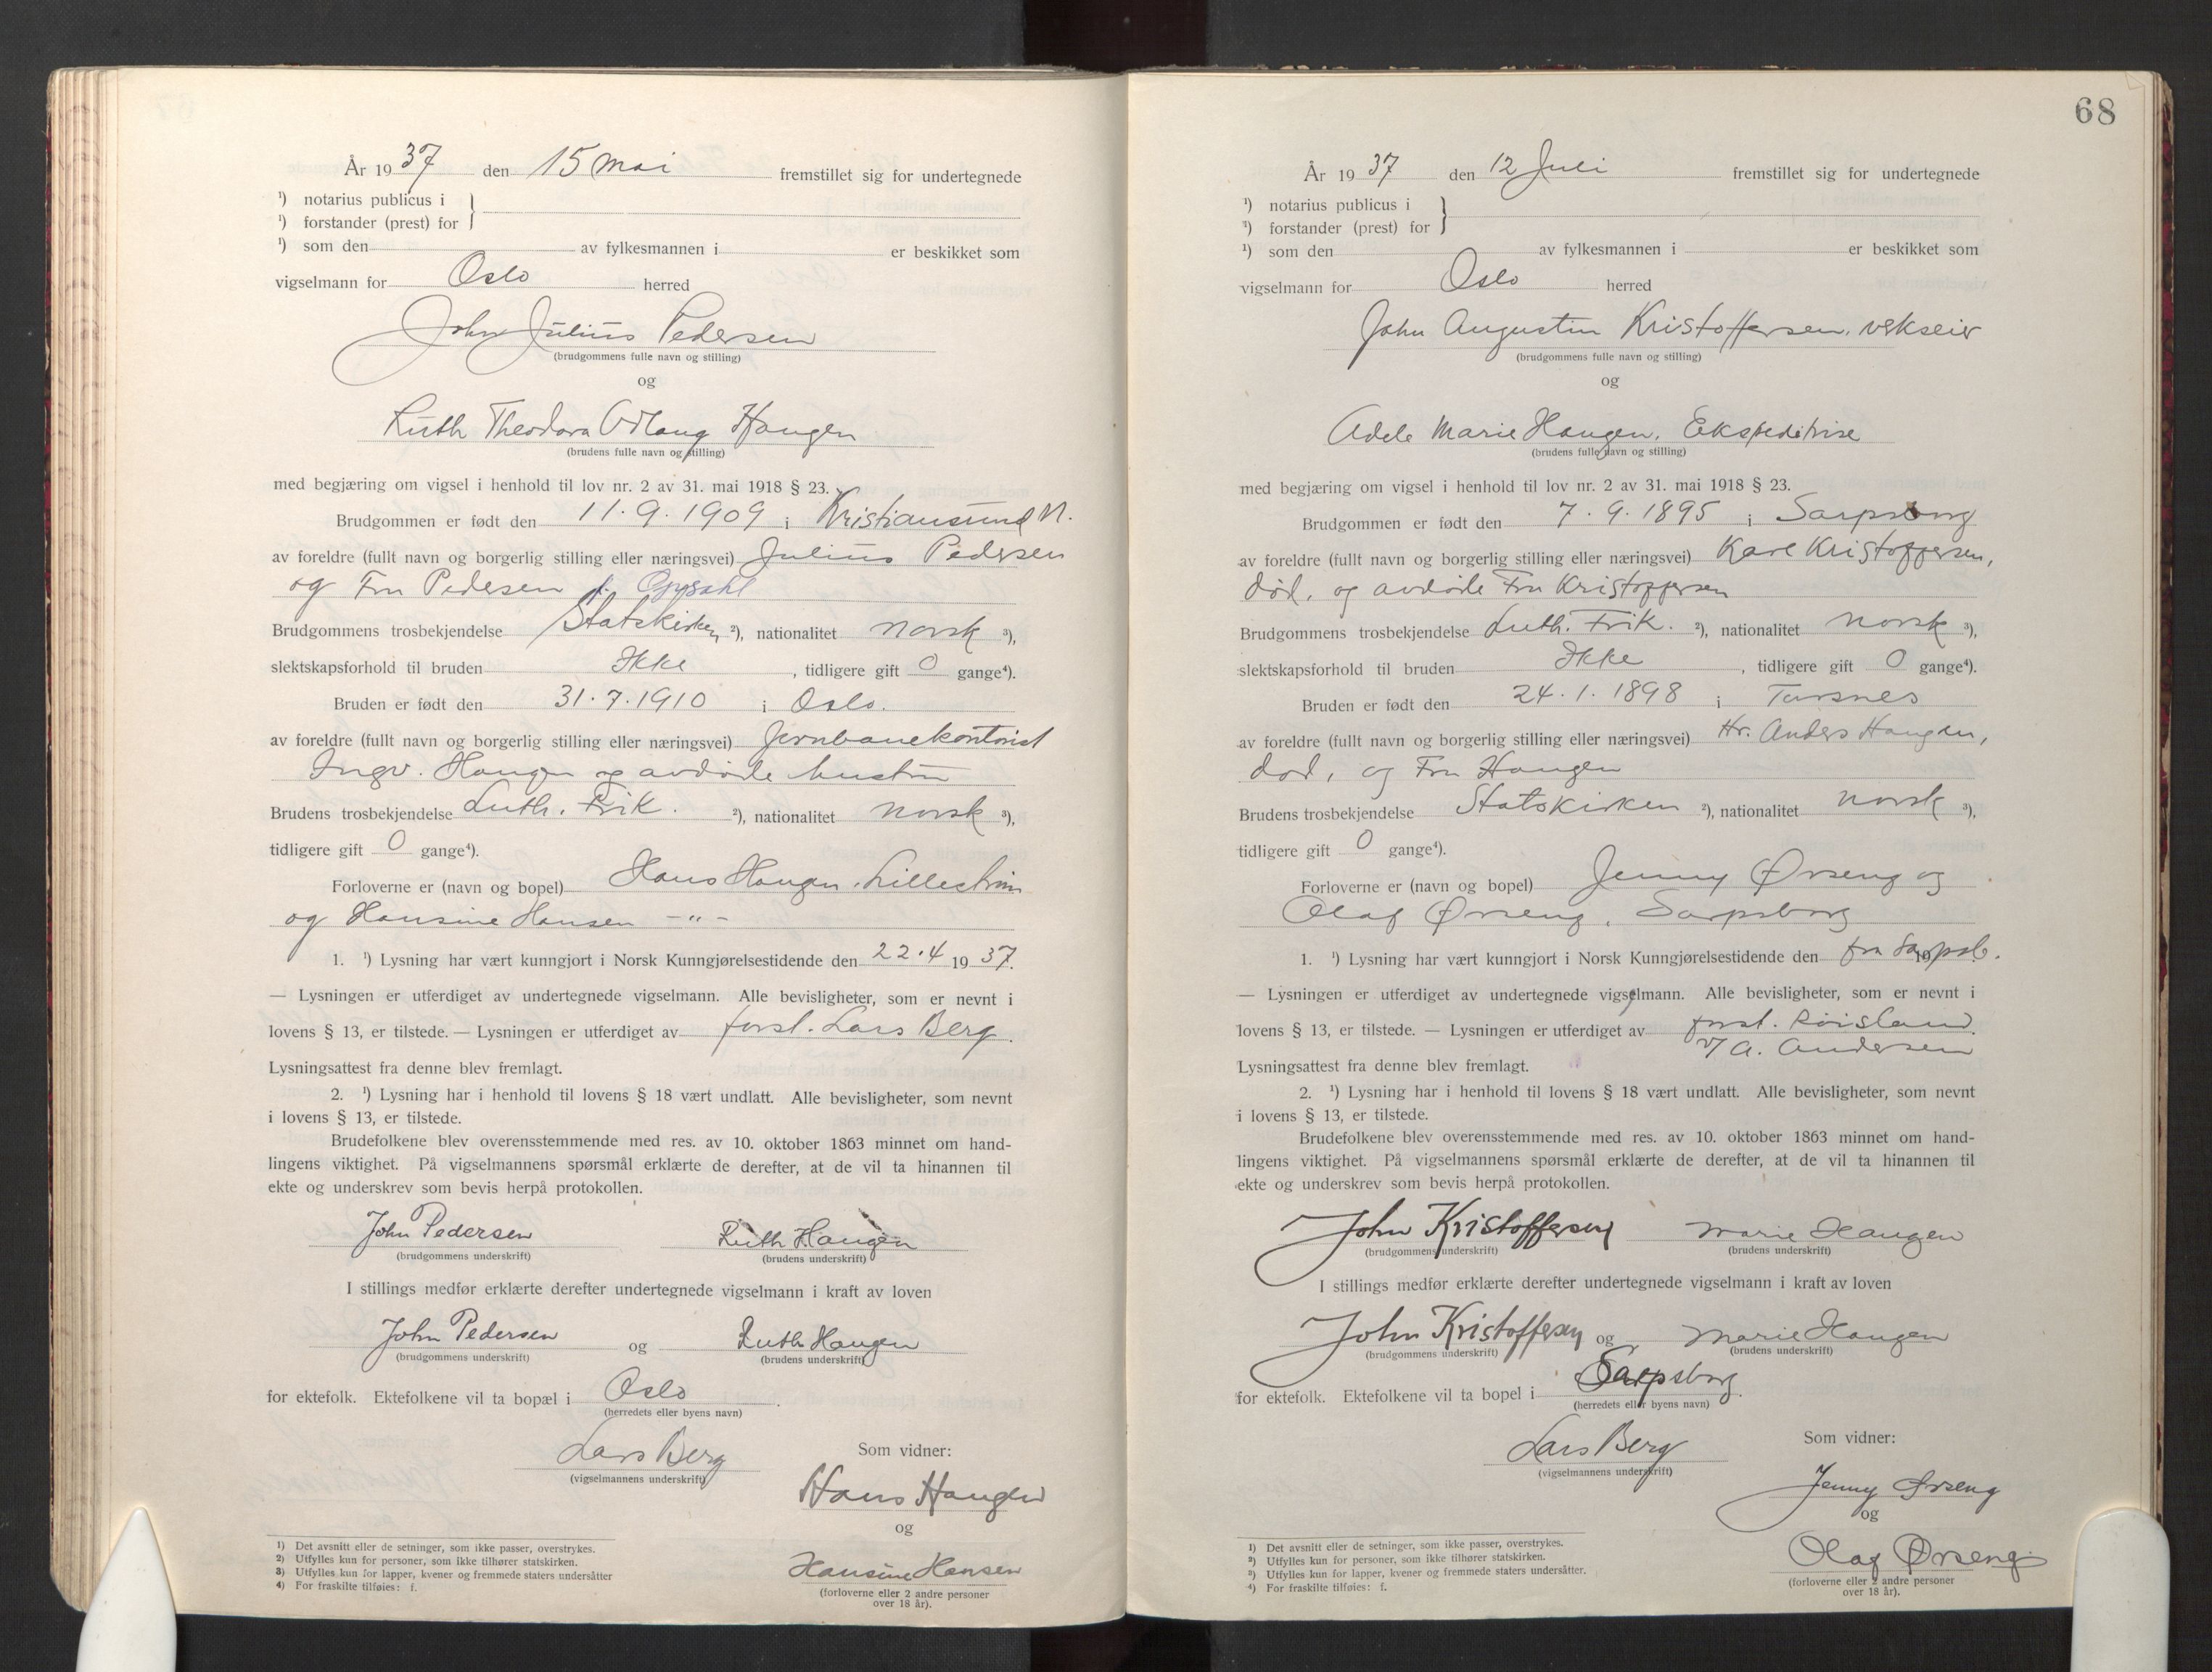 År 1937 den 15 mai fremstillet sig for undertegnede
¹) notarius publicus i
¹) forstander (prest) for
¹) som den av fylkesmannen i er beskikket som
vigselmann for Oslo herred
John Julius Pedersen
(brudgommens fulle navn og stilling)
og
Ruth Theodora Haugen
(brudens fulle navn og stilling)
med begjæring om vigsel i henhold til lov nr. 2 av 31. mai 1918 § 23.
Brudgommen er født den 11.9.1909 i Kristiansund N.
av foreldre (fullt navn og borgerlig stilling eller næringsvei) Julius Pedersen
og Fru Pedersen f. Opsahl
Brudgommens trosbekjendelse Statskirken ²), nationalitet norsk ³),
slektskapsforhold til bruden Ikke, tidligere gift 0 gange⁴).
Bruden er født den 31.7.1910 i Oslo.
av foreldre (fullt navn og borgerlig stilling eller næringsvei) Jernbanekontorist
Ingv. Haugen og avdøde hustru
Brudens trosbekjendelse Luth. Frik. ²), nationalitet norsk ³),
tidligere gift 0 gange⁴).
Forloverne er (navn og bopel) Hans Haugen, Lillestrøm
og Hansine Hansen -"-
1. ¹) Lysning har vært kunngjort i Norsk Kunngjørelsestidende den 22.4 1937.
— Lysningen er utferdiget av undertegnede vigselmann. Alle bevisligheter, som er nevnt i
lovens § 13, er tilstede. — Lysningen er utferdiget av forst. Lars Berg.
Lysningsattest fra denne blev fremlagt.
2. ¹) Lysning har i henhold til lovens § 18 vært undlatt. Alle bevisligheter, som nevnt
i lovens § 13, er tilstede.
Brudefolkene blev overensstemmende med res. av 10. oktober 1863 minnet om hand-
lingens viktighet. På vigselmannens spørsmål erklærte de derefter, at de vil ta hinannen til
ekte og underskrev som bevis herpå protokollen.
John Pedersen Ruth Haugen
(brudgommens underskrift) (brudens underskrift)
I stillings medfør erklærte derefter undertegnede vigselmann i kraft av loven
John Pedersen og Ruth Haugen
(brudgommens underskrift) (brudens underskrift)
for ektefolk. Ektefolkene vil ta bopæl i Oslo.
(herredets eller byens navn)
Lars Berg
(vigselmannens underskrift)
Som vidner:
Hans Haugen
og
Hansine Hansen
(forloverne eller 2 andre personer
over 18 år).
1) Det avsnitt eller de setninger, som ikke passer, overstrykes.
2) Utfylles kun for personer, som ikke tilhører statskirken.
3) Utfylles kun for lapper, kvener og fremmede staters undersåtter
4) For fraskilte tilføies: f.
68
År 1937 den 12 Juli fremstillet sig for undertegnede
¹) notarius publicus i
¹) forstander (prest) for
¹) som den av fylkesmannen i er beskikket som
vigselmann for Oslo herred
John Augustin Kristoffersen, vekseier
(brudgommens fulle navn og stilling)
og
Adele Marie Haugen, Ekspeditrise
(brudens fulle navn og stilling)
med begjæring om vigsel i henhold til lov nr. 2 av 31. mai 1918 § 23.
Brudgommen er født den 7.9.1895 i Sarpsborg
av foreldre (fullt navn og borgerlig stilling eller næringsvei) Karl Kristoffersen,
død, og avdøde Fru Kristoffersen
Brudgommens trosbekjendelse Luth. Frik. ²), nationalitet norsk ³),
slektskapsforhold til bruden Ikke, tidligere gift 0 gange⁴).
Bruden er født den 24.1.1898 i Torsnes
av foreldre (fullt navn og borgerlig stilling eller næringsvei) Hr. Anders Haugen,
død, og Fru Haugen
Brudens trosbekjendelse Statskirken ²), nationalitet norsk ³),
tidligere gift 0 gange⁴).
Forloverne er (navn og bopel) Jenny Ørseng og
Olaf Ørseng, Sarpsborg
1. ¹) Lysning har vært kunngjort i Norsk Kunngjørelsestidende den fra Sarpsb.
— Lysningen er utferdiget av undertegnede vigselmann. Alle bevisligheter, som er nevnt i
lovens § 13, er tilstede. — Lysningen er utferdiget av forst. Röisland.
v/ A. Andersen
Lysningsattest fra denne blev fremlagt.
2. ¹) Lysning har i henhold til lovens § 18 vært undlatt. Alle bevisligheter, som nevnt
i lovens § 13, er tilstede.
Brudefolkene blev overensstemmende med res. av 10. oktober 1863 minnet om hand-
lingens viktighet. På vigselmannens spørsmål erklærte de derefter, at de vil ta hinannen til
ekte og underskrev som bevis herpå protokollen.
John Kristoffersen Marie Haugen
(brudgommens underskrift) (brudens underskrift)
I stillings medfør erklærte derefter undertegnede vigselmann i kraft av loven
John Kristoffersen og Marie Haugen
(brudgommens underskrift) (brudens underskrift)
for ektefolk. Ektefolkene vil ta bopel i Sarpsborg.
(herredets eller byens navn)
Lars Berg
(vigselmannens underskrift)
Som vidner:
Jenny Ørseng
og
Olaf Ørseng
(forloverne eller 2 andre personer
over 18 år).
1) Det avsnitt eller de setninger, som ikke passer, overstrykes.
2) Utfylles kun for personer, som ikke tilhører statskirken.
3) Utfylles kun for lapper, kvener og fremmede staters undersåtter.
4) For fraskilte tilføies: f.